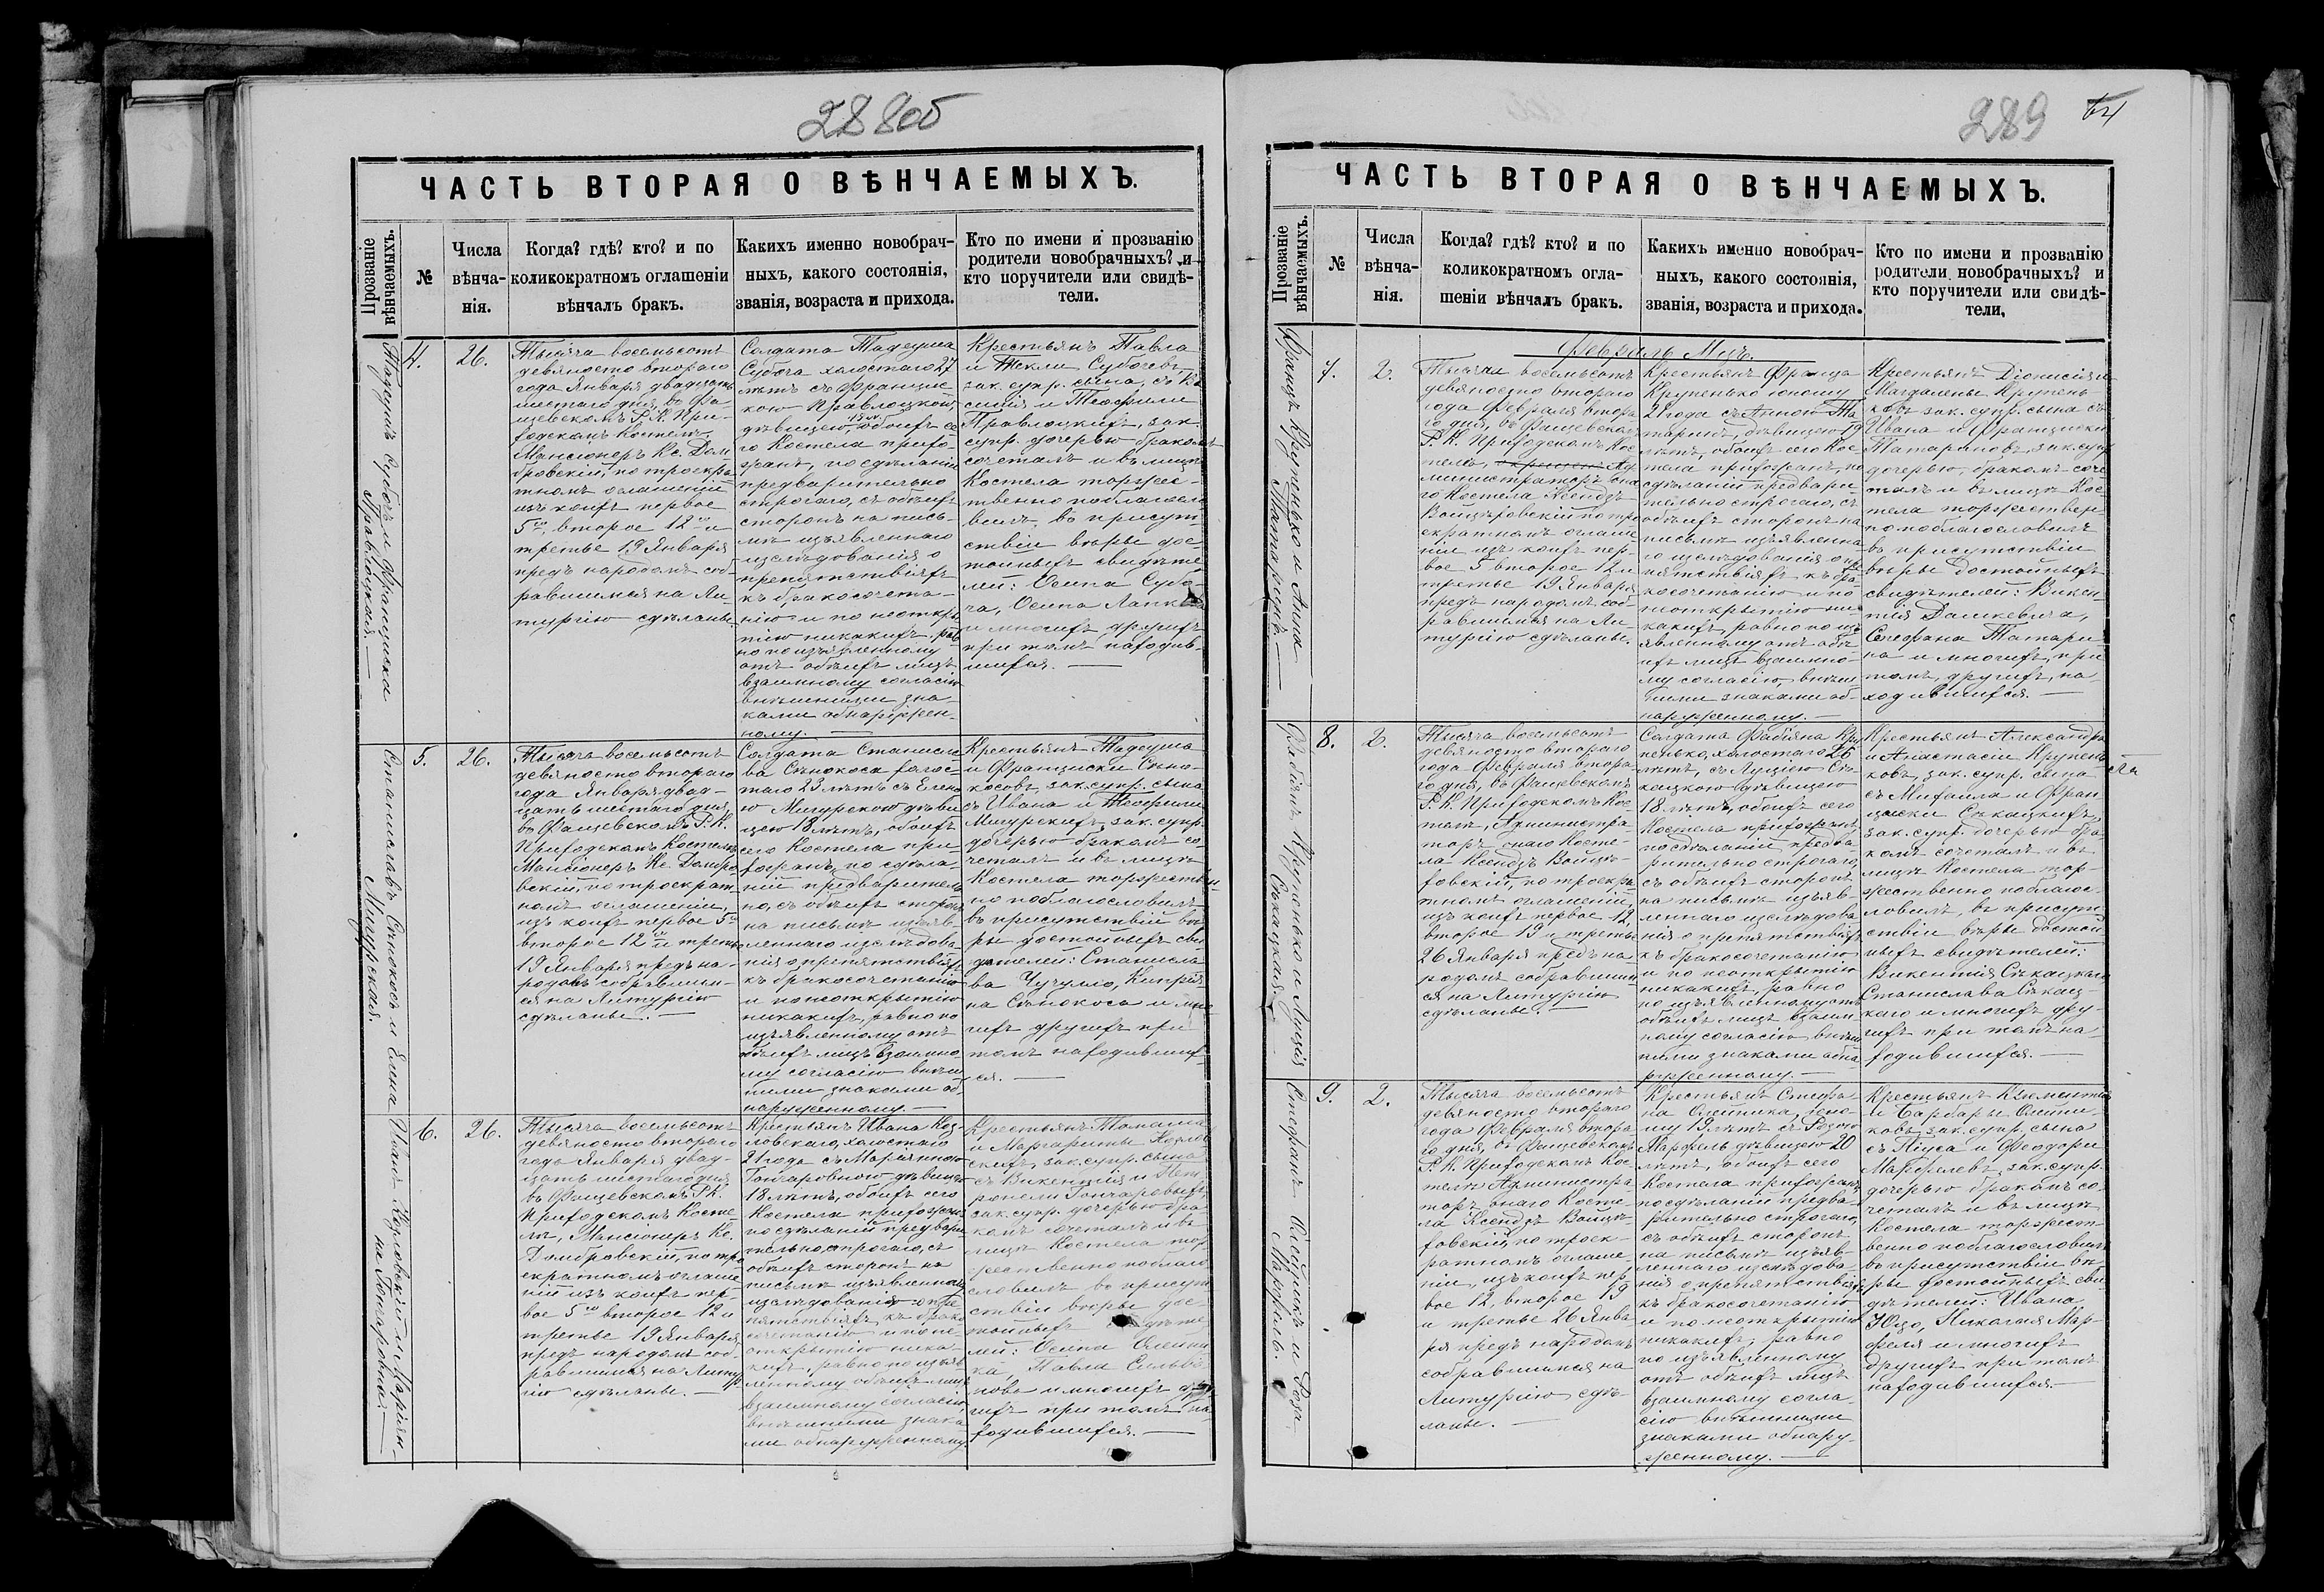 288об
ЧАСТЬ ВТОРАЯ О ВѢНЧАЕМЫХЪ.
Прозваніе вѣнчаемыхъ.
№
Числа
вѣнча-
нія.
Когда? гдѣ? кто? и по
коликократномъ оглашеніи
вѣнчалъ бракъ.
Какихъ именно новобрач-
ныхъ, какого состоянія,
званія, возраста и прихода.
Кто по имени и прозванію
родители новобрачныхъ? и
кто поручители или свидѣ-
тели.
Тадеушъ Субочъ и Франциска
Правлоцкая.
4.
26.
Тысяча восемьсотъ
девяносто втораго
года Января двадцать
шестаго дня, во Фа
щевскомъ Р. К. При-
ходскомъ Костелѣ,
Мансіонеръ Кс. Дом-
бровскій, по троекра
тномъ оглашеніи
изъ коихъ первое
5го второе 12го и
третье 19 Января
предъ народомъ соб
равшимся на Ли-
тургію сдѣланы.
Солдата Тадеуша
Субоча холостаго 27
лѣтъ съ Францис
кою Правлоцкою,
дѣвицею, обоихъ се
го Костела прихо-
жанъ, по сдѣланіи
предварительно
строгаго, съ обѣихъ
сторонъ на пись-
мѣ изъявленнаго
изслѣдованія о
препятствіяхъ
къ бракосочета-
нію и по неоткры
тію никакихъ, рав
но по изъявленному
отъ обѣихъ лицъ
взаимному согласію
внѣшними зна-
ками обнаружен-
ному.
Крестьянъ Павла
и Теклы Субочевъ
зак. супр. сына, съ Ви
и Теофили
Правлоцкихъ, зак.
супр. дочерью бракомъ
сочеталъ и въ лицѣ
Костела торжес-
твенно поблагосло
вилъ, въ присут-
ствіи вѣры дос-
тойныхъ свидѣте
лей: Осипа Субо-
ча, Осипа Лапк
и многихъ другихъ
при томъ находив-
шихся.
Станиславъ Сѣнокосъ и Елена
Мигурская.
5.
26.
Тысяча восемьсотъ
девяносто втораго
года Января двад-
цать шестаго дня,
во Фащевскомъ Р. К.
Приходскомъ Костелѣ
Мансіонеръ Кс. Домбро
вскій, по троекрат-
номъ оглашеніи,
изъ коихъ первое 5го
второе 12го и третье
19 Января предъ на-
родомъ собравшим-
ся на Литургію
сдѣланы.
Солдата Станисла
ва Сѣнокоса холос-
таго 23 лѣтъ съ Елено
ю Мигурскою дѣви
цею 18 лѣтъ, обоихъ
сего Костела при-
хожанъ, по сдѣла-
ніи предваритель
но, съ обѣихъ сторонъ
на письмѣ изъяв-
леннаго изслѣдова-
нія о препятствіяхъ
къ бракосочетанію
и по неоткрытію
никакихъ, равно по
изъявленному отъ
обѣихъ лицъ взаимно-
му согласію внѣш-
ними знаками об-
наруженному.
Крестьянъ Тадеуша
и Франциски Сѣно-
косовъ, зак. супр. сына
съ Ивана и Теофили
Мигурскихъ, зак. супр.
дочерью бракомъ со-
четалъ и въ лицѣ
Костела торжествен
но поблагословилъ
въ присутствіи вѣ-
ры достойныхъ сви
дѣтелей: Станисла-
ва Чучулло, Кипріа
на Сѣнокоса и мно
гихъ другихъ при
томъ находивших-
ся.
Иванъ Козловскій и Маріан-
на Гончаровна.
6.
26.
Тысяча восемьсотъ
девяносто втораго
года Января двад-
цать шестаго дня
въ Фащевскомъ Р. К.
Приходскомъ Косте
лѣ, Мансіонеръ Кс.
Домбровскій, по тро
екратномъ оглаше
ніи изъ коихъ пер-
вое 5го второе 12 и
третье 19 Января
предъ народомъ соб-
равшимся на Литур
гію сдѣланы.
Крестьянъ Ивана Коз-
ловскаго, холостаго
21 года съ Маріанною
Гончаровною дѣвицею
18 лѣтъ, обоихъ сего
Костела прихожанъ
по сдѣланіи предвари
тельно строгаго, съ
обѣихъ сторонъ на
письмѣ изъявленнаго
изслѣдованія о пре
пятствіяхъ къ брако
сочетанію и по не-
открытію ника-
кихъ, равно по изъяв
ленному обѣихъ лицъ
взаимному согласію,
внѣшними знака
ми обнаруженному.
Крестьянъ Томаша
и Маргариты Козлов
скихъ, зак. супр. сына
съ Викентія и Пет
ронели Гончаровыхъ,
зак. супр. дочерью бра
комъ сочеталъ и въ
лицѣ Костела тор
жественно поблаго
словилъ во присут
ствіи вѣры дос-
тойныхъ свидѣте
лей: Осипа Олейни
ка, Павла Сильва
нова и многихъ дру
гихъ при томъ на-
ходившихся.
289
64
ЧАСТЬ ВТОРАЯ О ВѢНЧАЕМЫХЪ.
Прозваніе вѣнчаемыхъ.
№
Числа
вѣнча-
нія.
Когда? гдѣ? кто? и по
коликократномъ огла-
шеніи вѣнчалъ бракъ.
Какихъ именно новобрач-
ныхъ, какого состоянія,
званія, возраста и прихода.
Кто по имени и прозванію
родители новобрачныхъ? и
кто поручители или свидѣ-
тели,
Февраль Мцъ.
Францъ Крупенько и Анна
Татаринъ.
7.
2.
Тысяча восемьсотъ
девяносто втораго
года Февраля втора
го дня, въ Фащевскомъ
Р. К. Приходскомъ Кос
телѣ, Ад
министраторъ она
го Костела Ксендзъ
Войцѣховскій по тро
екратномъ оглаше
ніи изъ коихъ пер-
вое 5 второе 12 и
третье 19 Января
предъ народомъ соб-
равшимся на Ли-
тургію сдѣланы.
Крестьянъ Франца
Крупенько юному
21 года съ Анною Та
таринъ, дѣвицею 19
лѣтъ, обоихъ сего Кос
тела прихожанъ, по
сдѣланіи предвари-
тельно строгаго, съ
обѣихъ сторонъ на
письмѣ изъявленна-
го изслѣдованія о пре
пятствіяхъ къ бра-
косочетанію и по
неоткрытію ни-
какихъ, равно по изъ
явленному отъ обѣ
ихъ лицъ взаимно-
му согласію внѣш-
ними знаками об-
наруженному.
Крестьянъ Діонисія и
Магдалены Крупень
ковъ зак. супр. сына съ
Ивана и Франциски
Татариновъ, зак. супр
дочерью, бракомъ соче
талъ и въ лицѣ Кос-
тела торжествен-
но поблагословилъ
въ присутствіи
вѣры достойныхъ
свидѣтелей: Викен-
тія Дашкевича,
Стефана Татари-
на и многихъ, при
томъ, другихъ, на-
ходившихся.
Фабіанъ Крупенько и Луція
Сѣкацкая.
8.
2.
Тысяча восемьсотъ
девяносто втораго
года Февраля втора
го дня, въ Фащевскомъ
Р. К. Приходскомъ Кос
телѣ, Администра-
торъ онаго Косте-
ла Ксендзъ Войцѣ-
ховскій, по троекра
тномъ оглашеніи,
изъ коихъ первое 12,
второе 19 и третье
26 Января предъ на-
родомъ собравшим
ся на Литургію
сдѣланы.
Солдата Фабіяна Кру
пенько, холостаго 26
лѣтъ, съ Луціею Сѣ-
кацкою дѣвицею
18 лѣтъ, обоихъ сего
Костела прихожанъ
по сдѣланіи предва-
рительно строгаго,
съ обѣихъ сторонъ
на письмѣ изъяв-
леннаго изслѣдова-
нія о препятствіяхъ
къ бракосочетанію
и по неоткрытію
никакихъ, равно
по изъявленному отъ
обѣихъ лицъ взаим-
ному согласію внѣш
ними знаками обна-
руженному.
Крестьянъ Александра
и Анастасіи Крупень
ковъ, зак. супр. сына
съ Михаила и Фран-
циски Сѣкацкихъ,
зак. супр. дочерью бра
комъ сочеталъ и въ
лицѣ Костела тор-
жественно поблагос-
ловилъ, въ присут-
ствіи вѣры достой
ныхъ свидѣтелей:
Викентія Сѣкацкаго,
Станислава Сѣкац-
каго и многихъ дру-
гихъ при томъ на-
ходившихся.
Стефанъ Олейникъ и Роза
Марфель.
9.
2.
Тысяча восемьсотъ
девяносто втораго
года Февраля втора
го дня, въ Фащевскомъ
Р. К. Приходскомъ Кос-
телѣ Администра-
торъ онаго Косте-
ла Ксендзъ Войцѣ-
ховскій, по троек-
ратномъ оглаше
ніи, изъ коихъ пер
вое 12, второе 19
и третье 26 Янва
ря предъ народомъ
собравшимся на
Литургію сдѣ-
ланы.
Крестьянъ Стефа-
на Олейника, юно-
му 19 лѣтъ съ Розою
Марфель дѣвицею 20
лѣтъ, обоихъ сего
Костела прихожанъ,
по сдѣланіи предва-
рительно строгаго,
съ обѣихъ сторонъ
на письмѣ изъяв-
леннаго изслѣдова-
нія о препятствіяхъ
къ бракосочетанію
и по неоткрытію
никакихъ, равно
по изъявленному
отъ обѣихъ лицъ
взаимному согла-
сію внѣшними
знаками обнару-
женному.
Крестьянъ Климентія
и Барбары Олейни-
ковъ, зак. супр. сына
съ Піуса и Феодоры
Марфелевъ, зак. супр.
дочерью бракомъ со-
четалъ и въ лицѣ
Костела торжест-
венно поблагословилъ
въ присутствіи вѣ-
ры достойныхъ сви
дѣтелей: Ивана
Юцо, Николая Мар-
феля и многихъ
другихъ при томъ
находившихся.